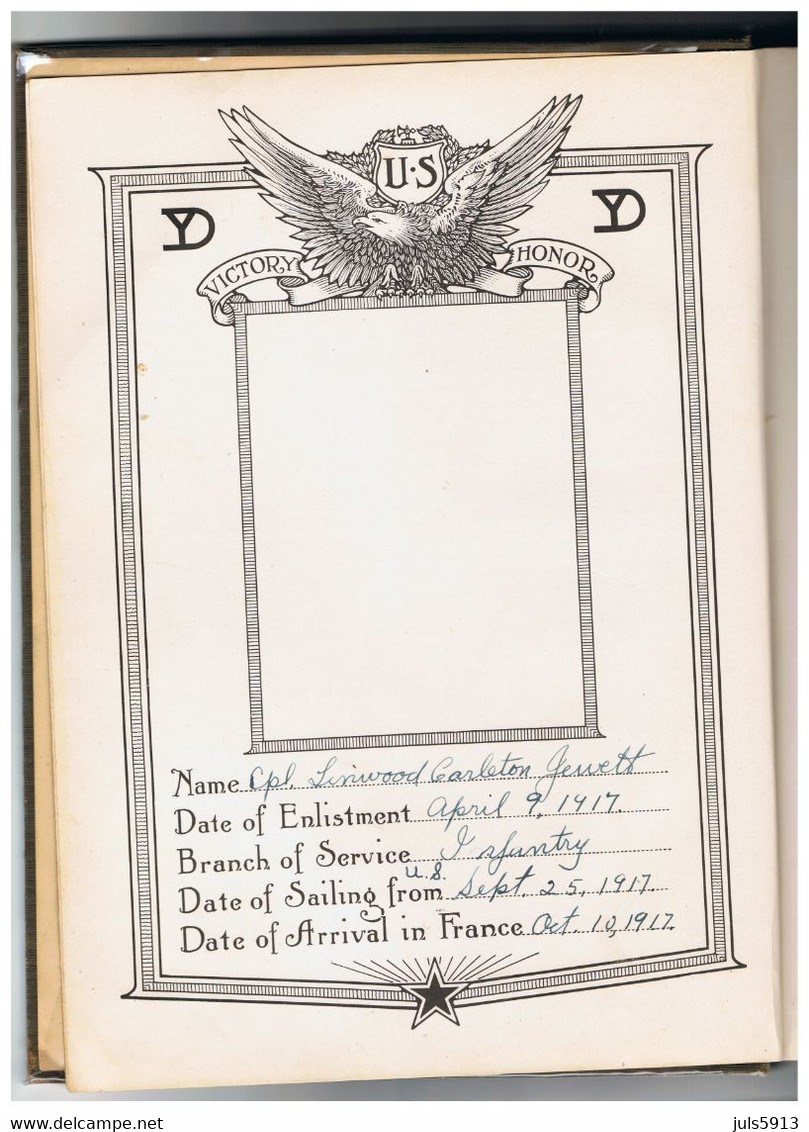 U·S
YD YD
VICTORY HONOR
Name Cpl. Linwood Carleton Jewett
Date of Enlistment April 9, 1917.
Branch of Service Infantry
Date of Sailing from U.S. Sept. 25, 1917.
Date of Arrival in France Oct. 10, 1917.
www.delcampe.net juls5913